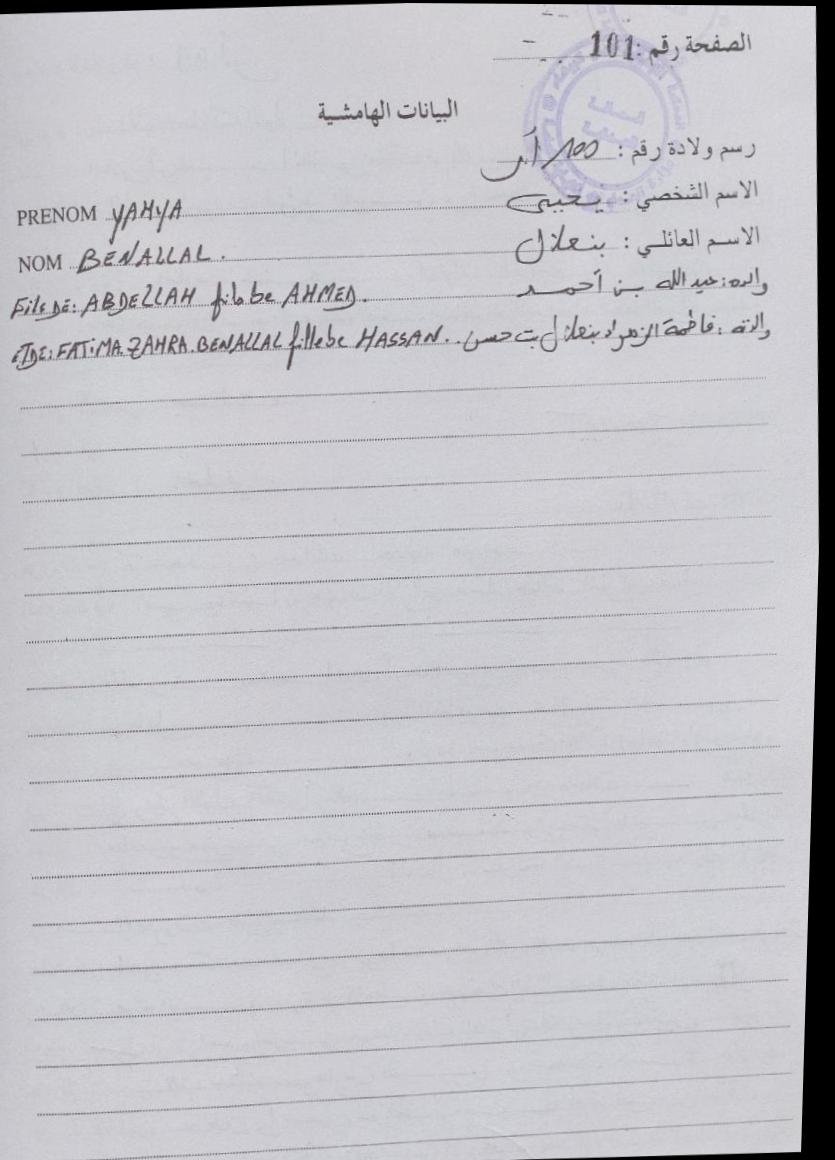 الصفحة رقم : 101
البيانات الهامشية
رسم ولادة رقم : 100 / أ
PRENOM YAHYA الاسم الشخصي : يحيى
NOM BENALLAL . الاسم العائلي : بنعلال
Fils DE: ABDELLAH fils de AHMED. والده: عبد الله بن أحمد
ET DE: FATIMA.ZAHRA.BENALLAL fille de HASSAN. والدته : فاطمة الزهراء بنعلال بنت حسن